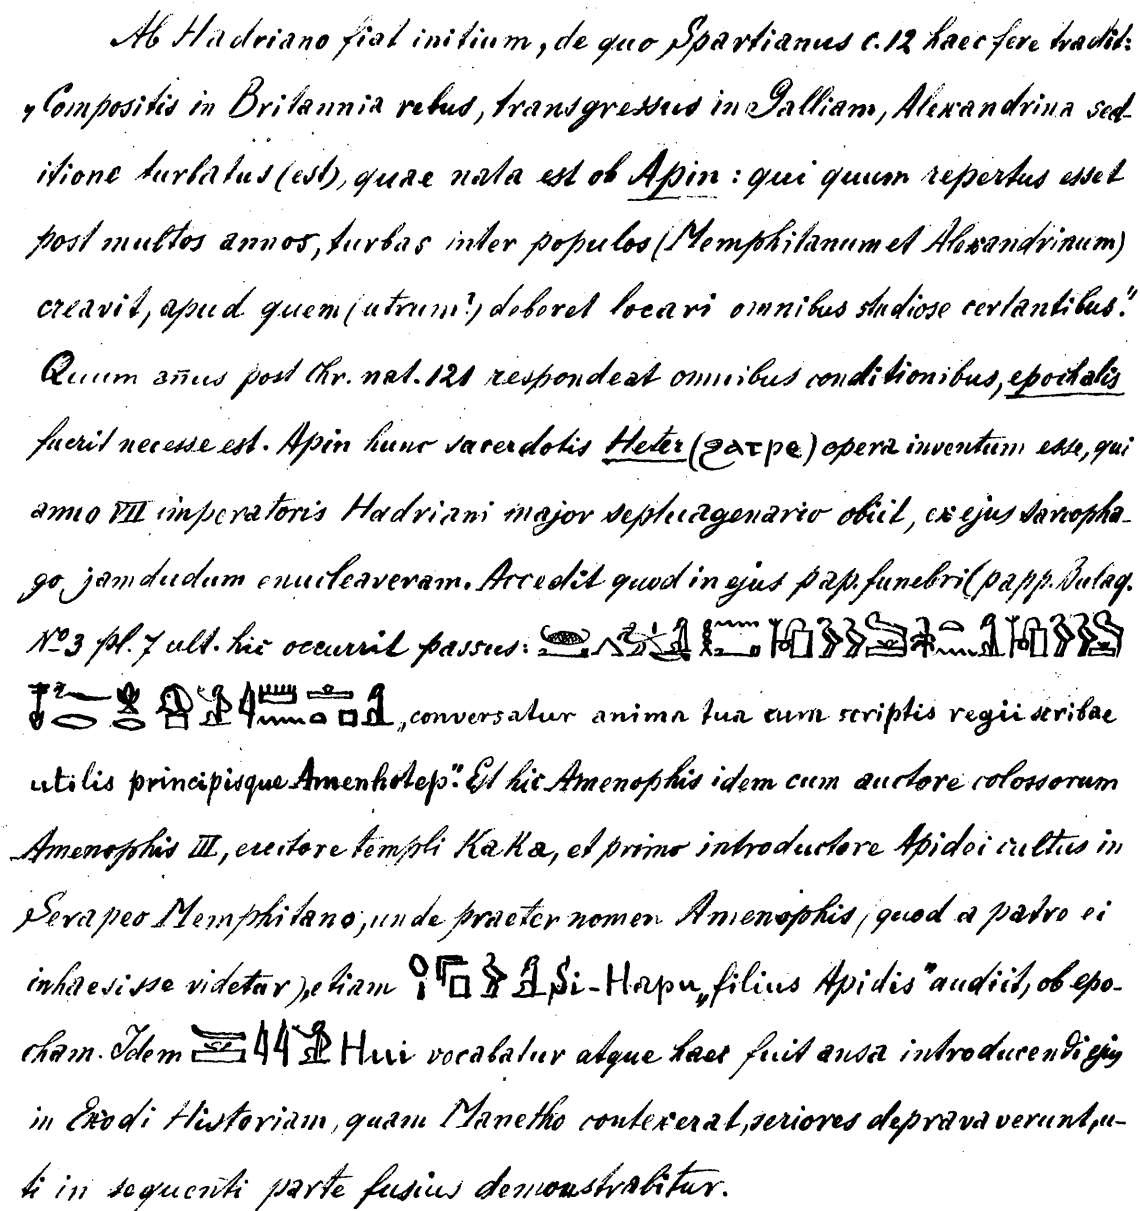 Ab Hadriano fiat initium, de quo Spartianus c. 12 haec fere tradit:
„Compositis in Britannia rebus, transgressus in Galliam, Alexandrina sed-
itione turbatus (est), quae nata est ob Apin: qui quum repertus esset
post multos annos, turbas inter populos (Memphitanum et Alexandrinum)
creavit, apud quem (utrum?) deberet locari omnibus studiose certantibus."
Quum añus post Chr. nat. 121 respondeat omnibus conditionibus, epochalis
fuerit necesse est. Apin hunc sacerdotis Heter (ϩατρε) opera inventum esse, qui
anno VII imperatoris Hadriani major septuagenario obiit, ex ejus sarcopha-
go jamdudum enucleaveram. Accedit quod in ejus pap. funebri (papp. Bulaq.
No 3 pl. 7 ult. hic occurrit passus:
„conversatur anima tua cum scriptis regii scribae
utilis principisque Amenhotep". Est hic Amenophis idem cum auctore colossorum
Amenophis III, erectore templi KaKa, et primo introductore Apidei cultus in
Serapeo Memphitano, unde praeter nomen Amenophis, quod a patro ei
inhaesisse videtur), etiam Si-Hapu „filius Apidis" audiit, ob epo-
cham. Idem Hui vocabatur atque haec fuit ansa introducendi ejus
in Exodi Historiam, quam Manetho contexerat, seriores depravaverunt, u-
ti in sequenti parte fusius demonstrabitur.